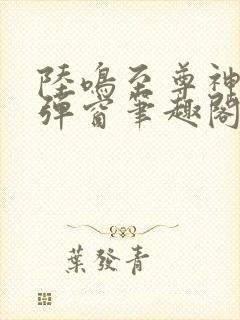 陸鳴至尊神
彈窗筆趣閣
葉發青